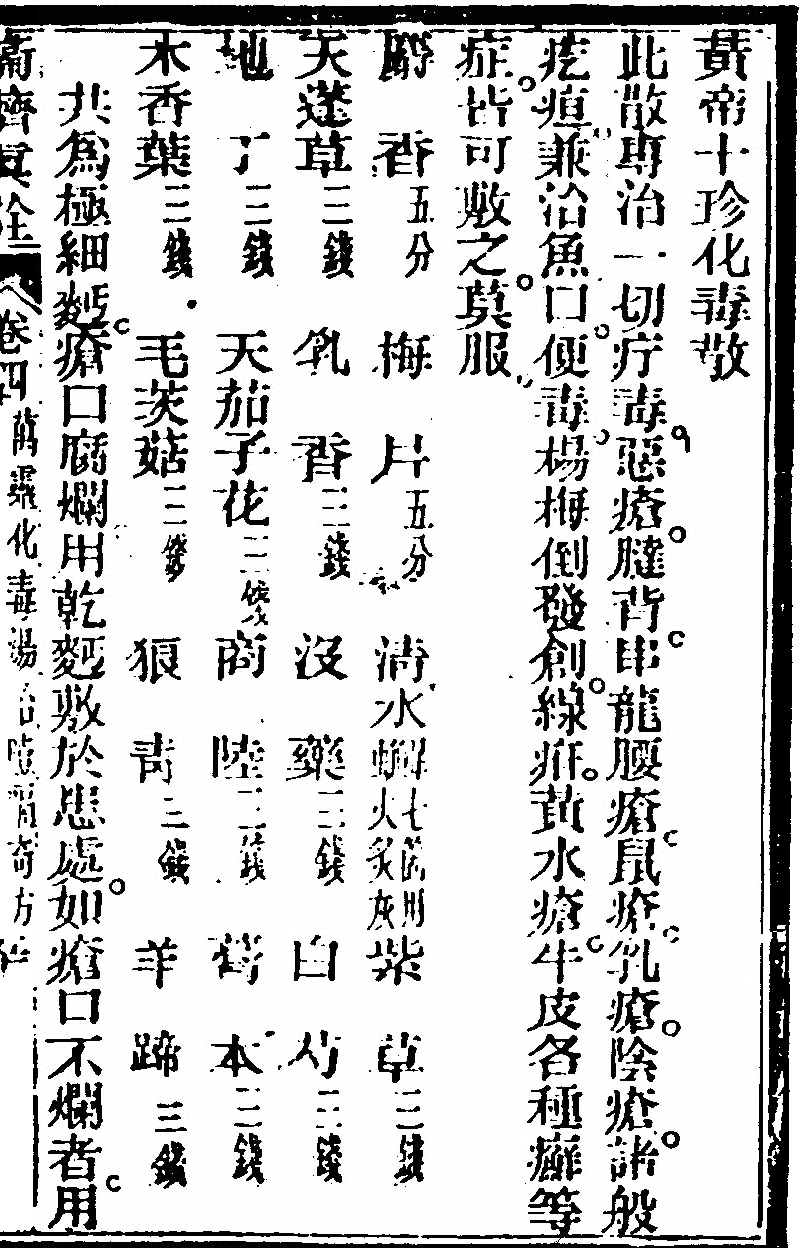 黃帝十珍化毒散
此散專治一切疔毒惡瘡臃背串龍腰瘡鼠瘡乳瘡陰瘡諸般
疙疸兼治魚口便毒楊梅倒發創線疳黃水瘡牛皮各種癬等
症皆可敷之莫服
麝香五分 梅片五分 清水蟹七箇用火炙灰 紫草三錢
天蓬草三錢 乳香三錢 沒藥三錢 白芍三錢
地丁三錢 天茄子花三錢 商陸三錢 藁本三錢
木香葉三錢 毛茨菇三錢 狼毒三錢 羊蹄三錢
共為極細麪瘡口腐爛用乾麪敷於患處如瘡口不爛者用
卷四 化毒湯